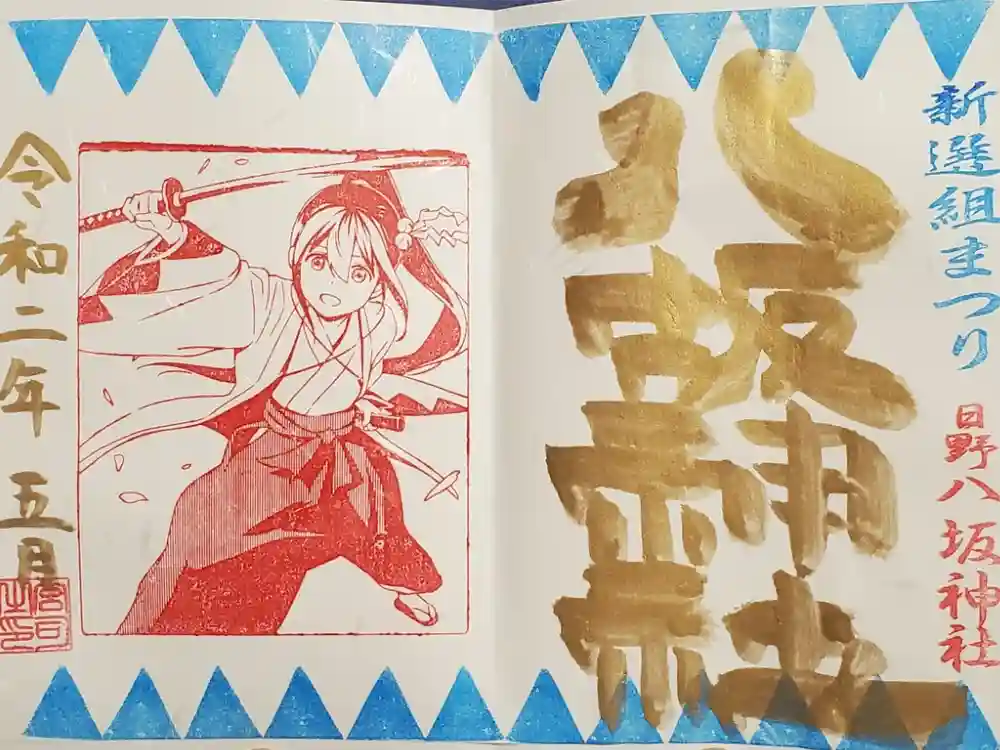 新選組まつり
日野八坂神社
八坂神社
令和二年 五月
宮司之印